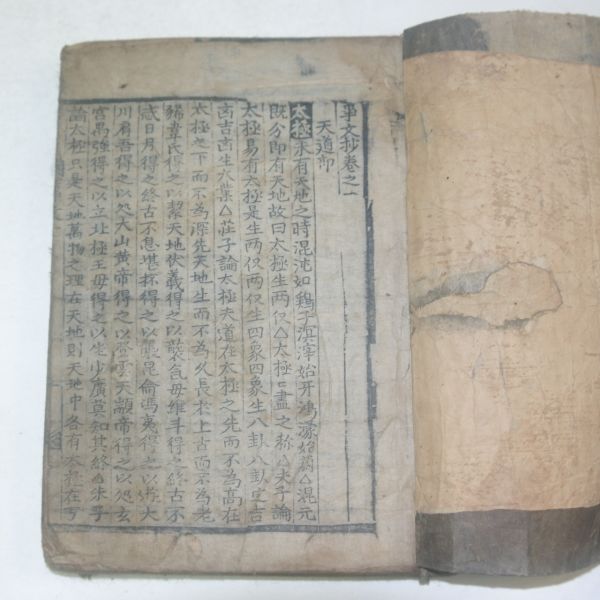 事文抄卷之一
天道部
太極未有天地之時混沌如鷄子溟涬始牙鴻濛始萌△混元
既分即有天地故曰太極生兩仪△太極亡盡之称△夫子論
太極易有太極是生两仪两仪生四象四象生八卦八卦定吉
凶吉凶生大業△莊子論太極夫道在太極之先而不為高在
太極之下而不為深先天地生而不為久長扵上古而不為老
狶韋氏得之以挈天地伏羲得之以襲氣母維斗得之終古不
忒日月得之終古不息堪杯得之以襲昆侖馮夷得之以㳺大
川肩吾得之以処大山黄帝得之以登雲天顓帝得之以処玄
宮禺強得之以立北極王母得之以坐少廣莫知其終△朱子
論太極只是天地萬物之理在天地則天地中各有太極在万